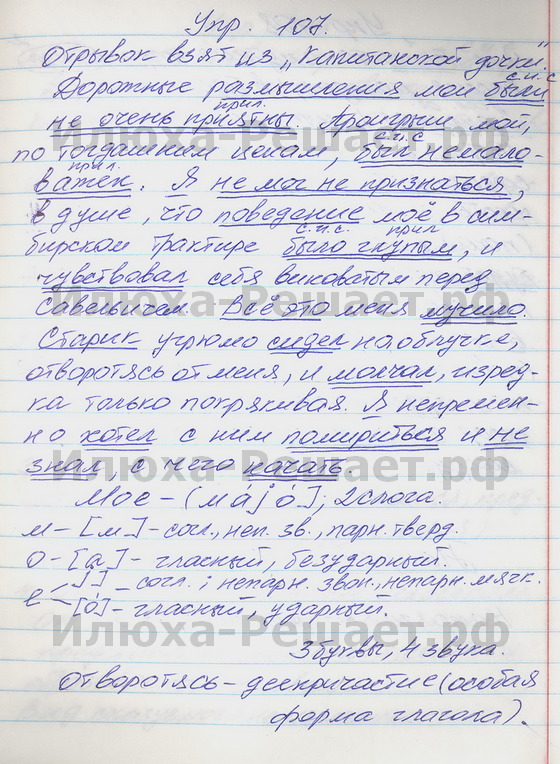 Упр. 107.
Отрывок взят из „Капитанской дочки".
с.и.с
Дорожные размышления мои были
прил.
не очень приятны. Проигрыш мой,
с.и.с
по тогдашним ценам, был немало-
прил.
важен. Я не мог не признаться,
в душе, что поведение моё в сим-
с.и.с. прил
бирском трактире было глупым, и
чувствовал себя виноватым перед
Савельичем. Всё это меня мучило.
Старик угрюмо сидел на облучке,
отворотясь от меня, и молчал, изред-
ка только покрякивая. Я непремен-
но хотел с ним помириться и не
знал, с чего начать.
Мое – [мajó], 2 слога.
м – [м] – согл., неп. зв., парн. тверд.
о – [а] – гласный, безударный.
е [j'] – согл., непарн. звон., непарн. мягк.
[о́] – гласный, ударный.
3 буквы, 4 звука.
Отворотясь – деепричастие (особая
форма глагола).
Илюха-Решает.рф
Илюха-Решает.рф
Илюха-Решает.рф
Илюха-Решает.рф